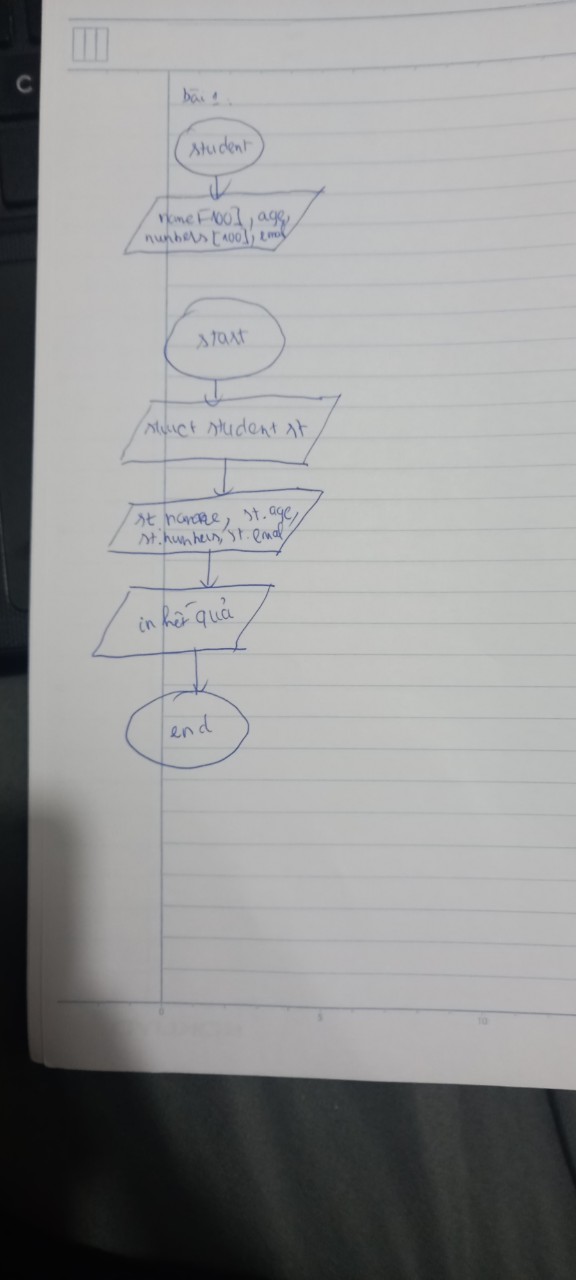 C
bài 1.
student
name[100], age,
numbers[100], email
start
struct student st
st.name, st.age,
st.numbers, st.email
in kết quả
end
0 5 10